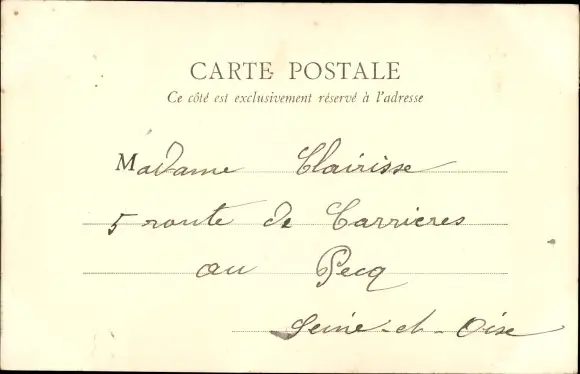 CARTE POSTALE
Ce côté est exclusivement réservé à l'adresse
Madame Clairisse
5 route de Carrieres
au Pecq
Seine-et-Oise